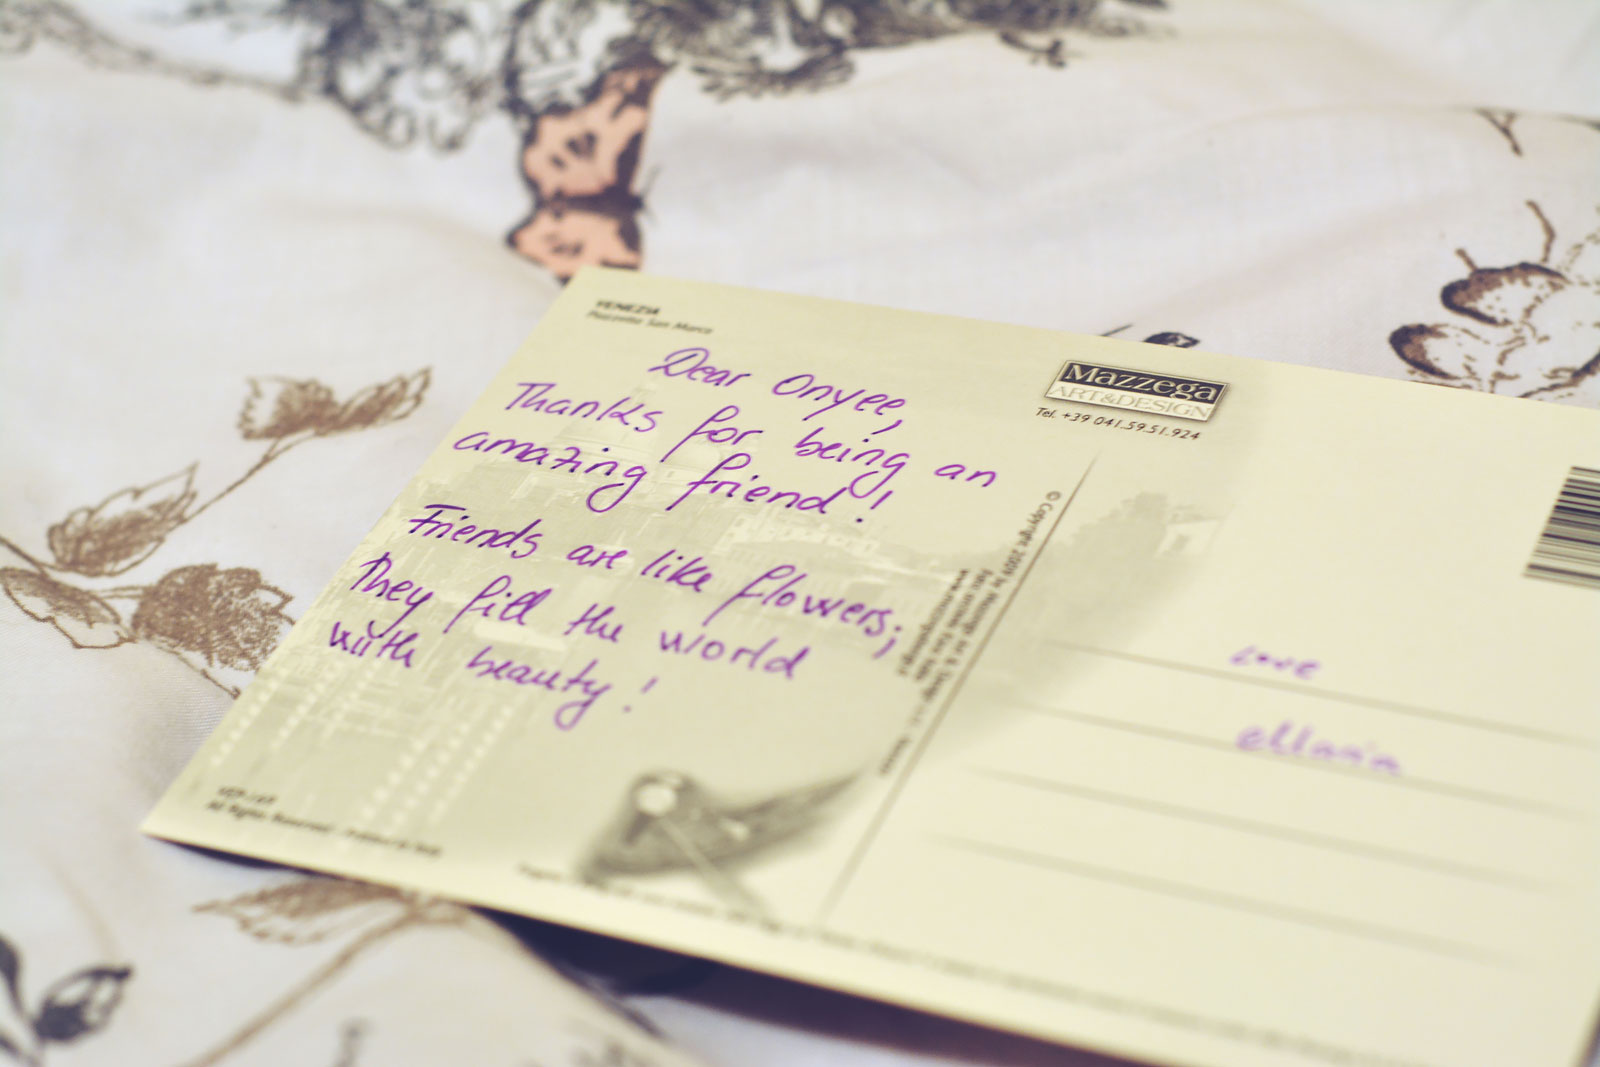 VENEZIA
Piazzetta San Marco
Dear Onyee,
Thanks for being an
amazing friend!
Friends are like flowers;
They fill the world
with beauty!
Mazzega
ART&DESIGN
Tel. +39 041.59.51.924
© Copyright 2009 by Mazzega
Love
ellaria
All Rights Reserved